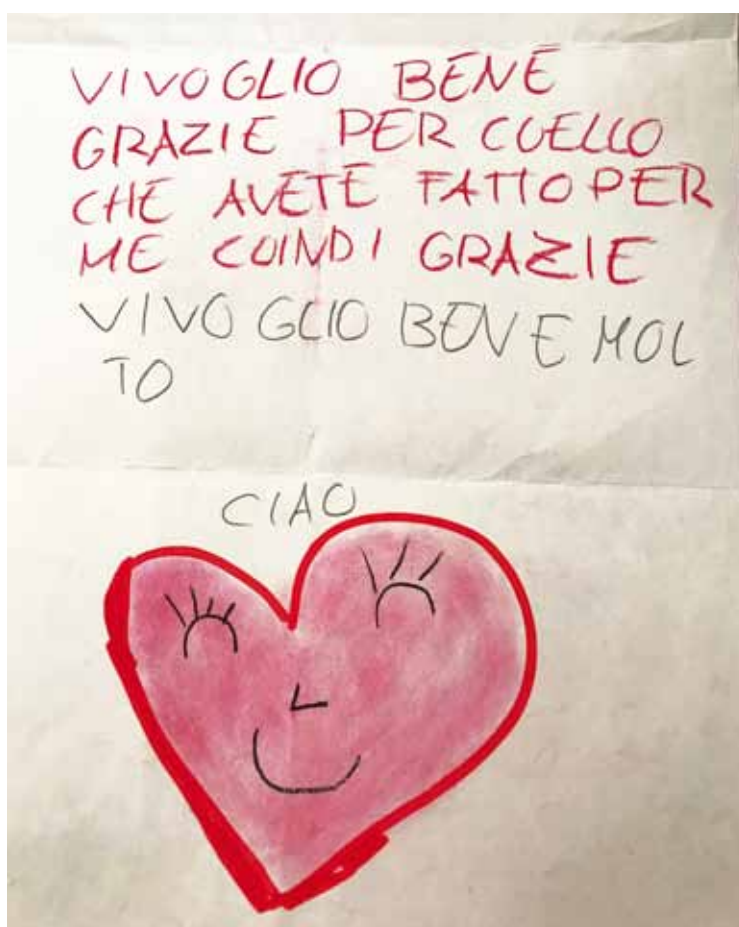 VIVOGLIO BENE
GRAZIE PER CUELLO
CHE AVETE FATTO PER
ME CUINDI GRAZIE
VIVO GLIO BENE MOL
TO
CIAO